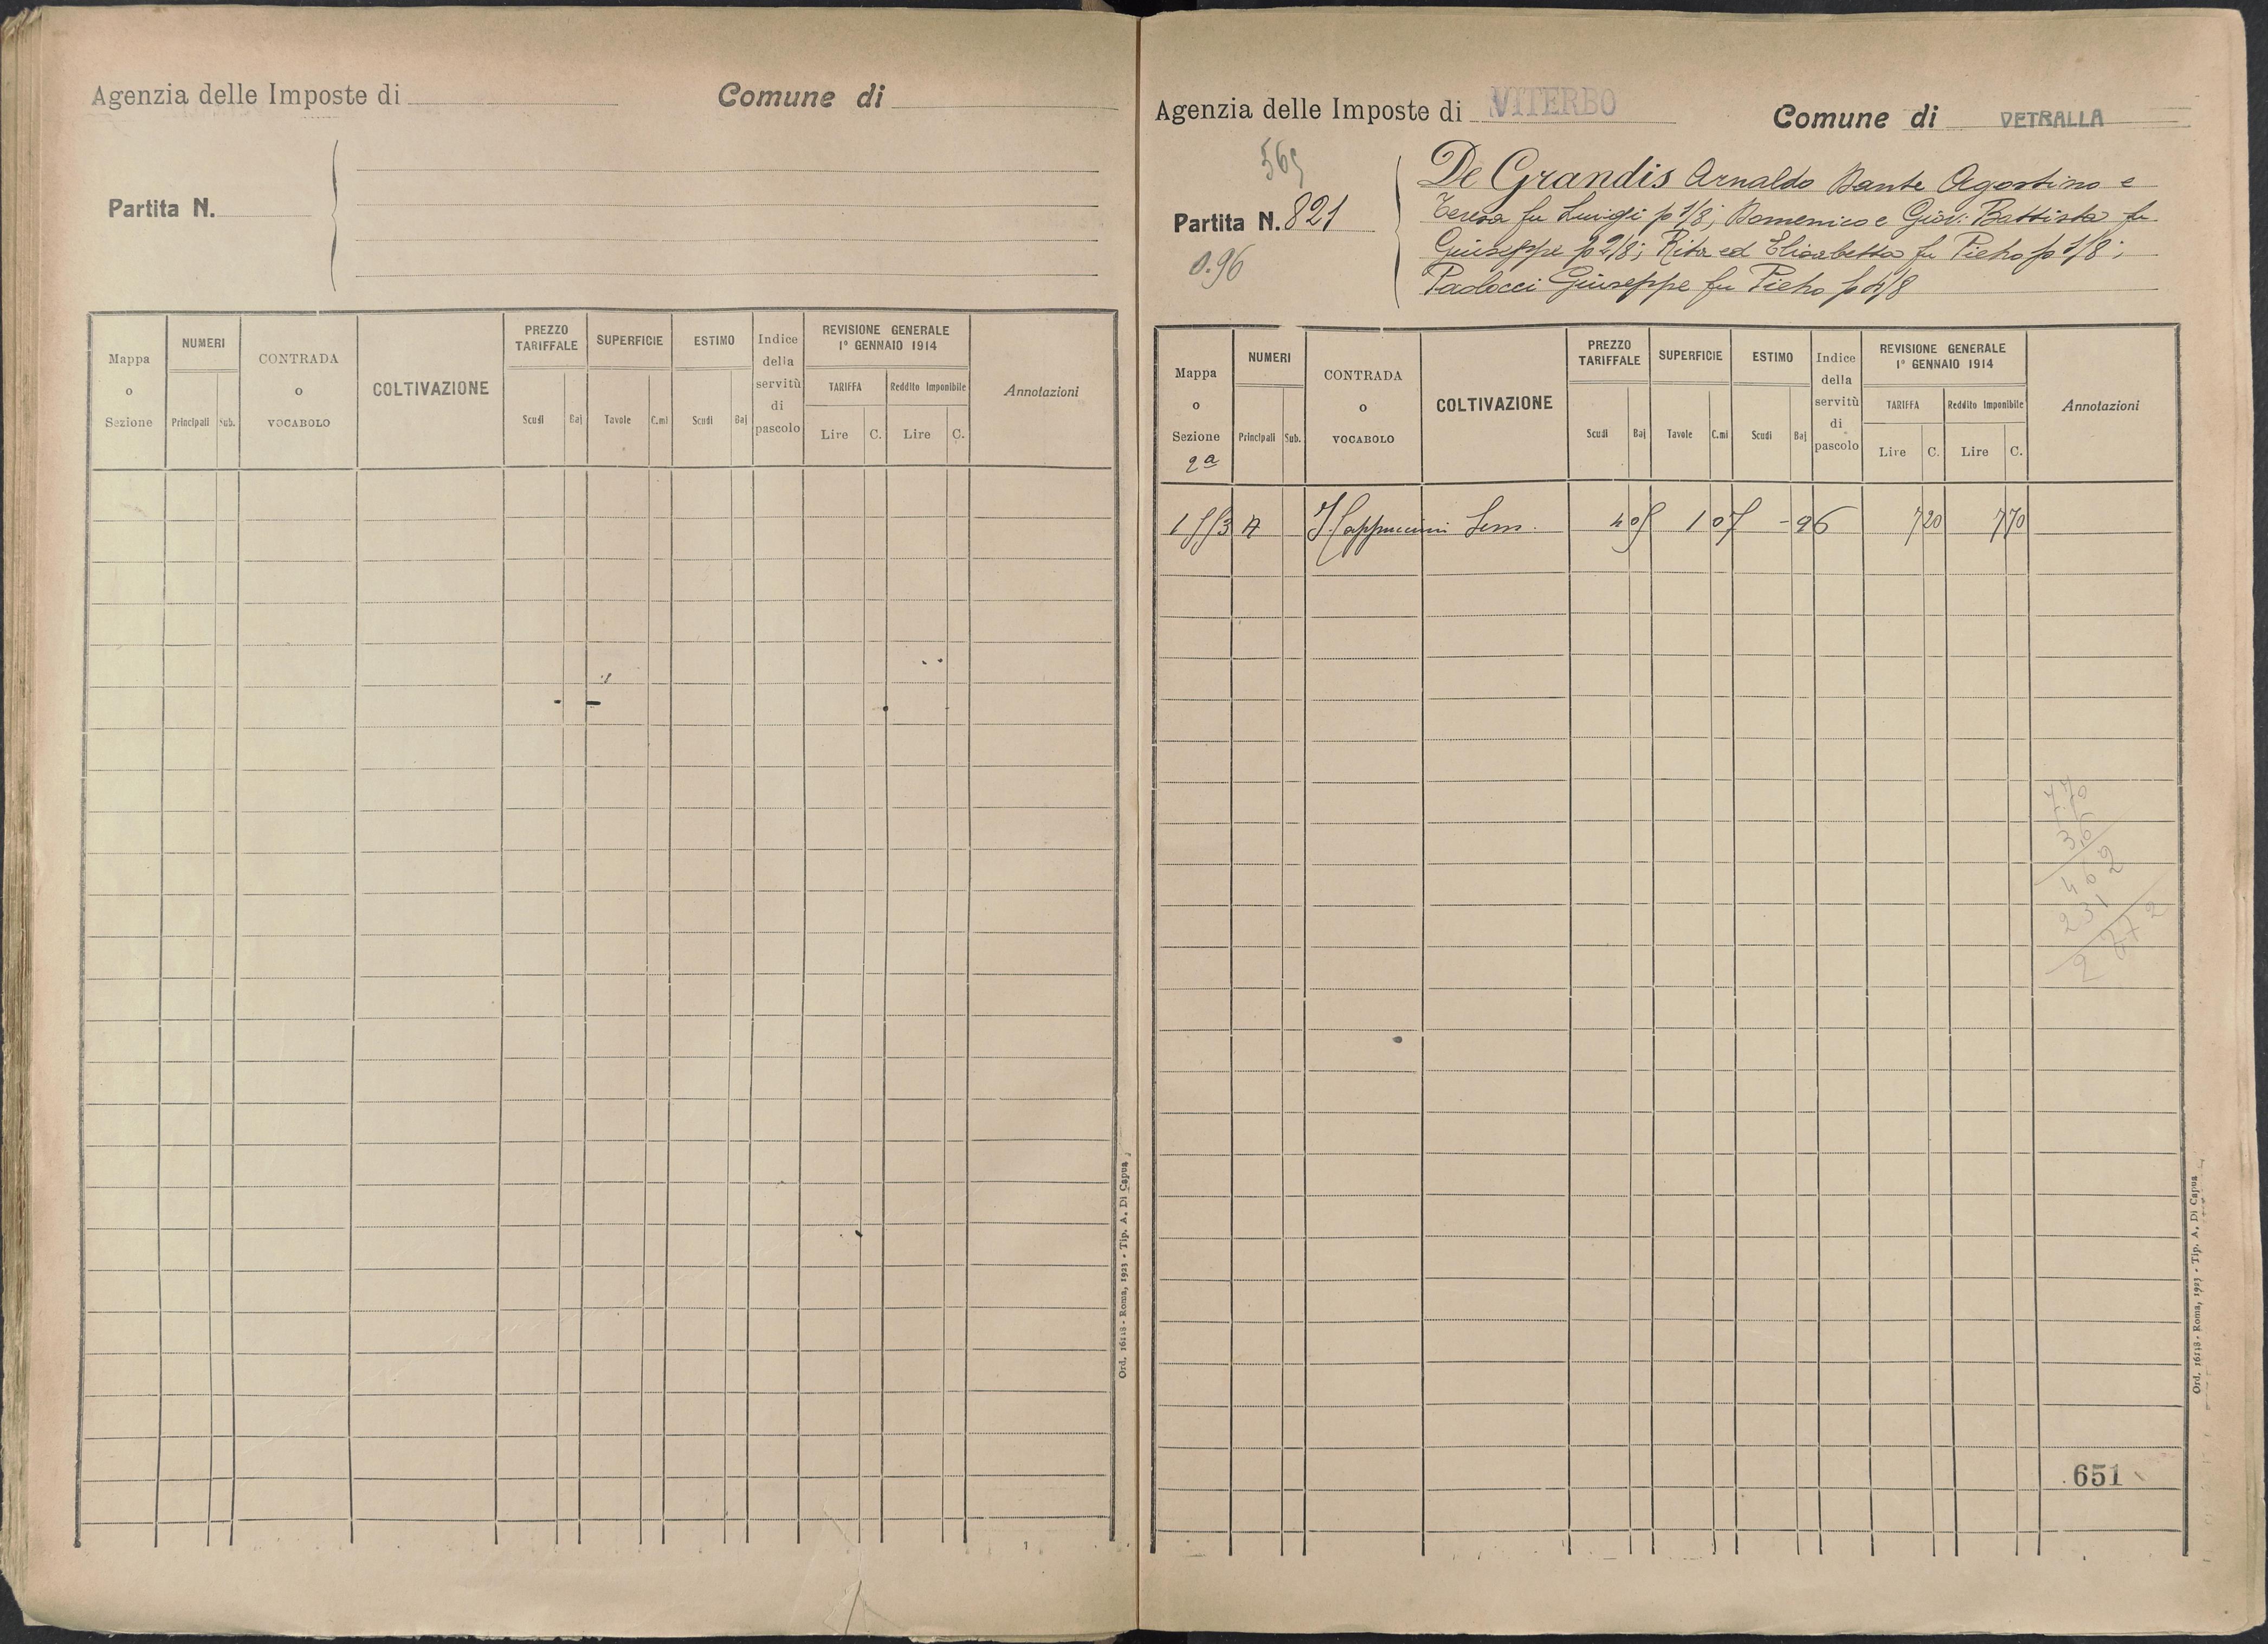 Agenzia delle Imposte di
Comune di
Partita N.
Mappa o Sezione
NUMERI
Principali
Sub.
CONTRADA o VOCABOLO
COLTIVAZIONE
PREZZO TARIFFALE
Scudi
Baj
SUPERFICIE
Tavole
C.mi
ESTIMO
Scudi
Baj
Indice della servitù di pascolo
REVISIONE GENERALE
1° GENNAIO 1914
TARIFFA
Reddito Imponibile
Lire
C.
Lire
C.
Annotazioni
Ord. 16118 - Roma, 1923 - Tip. A. Di Capua
Agenzia delle Imposte di VITERBO
Comune di VETRALLA
Partita N. 821
0.96
De Grandis Arnaldo Dante Agostino e
Teresa fu Luigi p 1/8; Domenico e Giov: Battista fu
Giuseppe p 2/8; Rita ed Elisabetta fu Pietro p 1/8;
Paolocci Giuseppe fu Pietro p 4/8
Mappa o Sezione
2a
NUMERI
Principali
Sub.
CONTRADA o VOCABOLO
COLTIVAZIONE
PREZZO TARIFFALE
Scudi
Baj
SUPERFICIE
Tavole
C.mi
ESTIMO
Scudi
Baj
Indice della servitù di pascolo
REVISIONE GENERALE
1° GENNAIO 1914
TARIFFA
Reddito Imponibile
Lire
C.
Lire
C.
Annotazioni
I Cappuccini Sem. 1 07 - 96 7 20 7 70
7.70
3.6
4 6 2
2 3 1
2 7 7 2
651
Ord. 16118 - Roma, 1923 - Tip. A. Di Capua